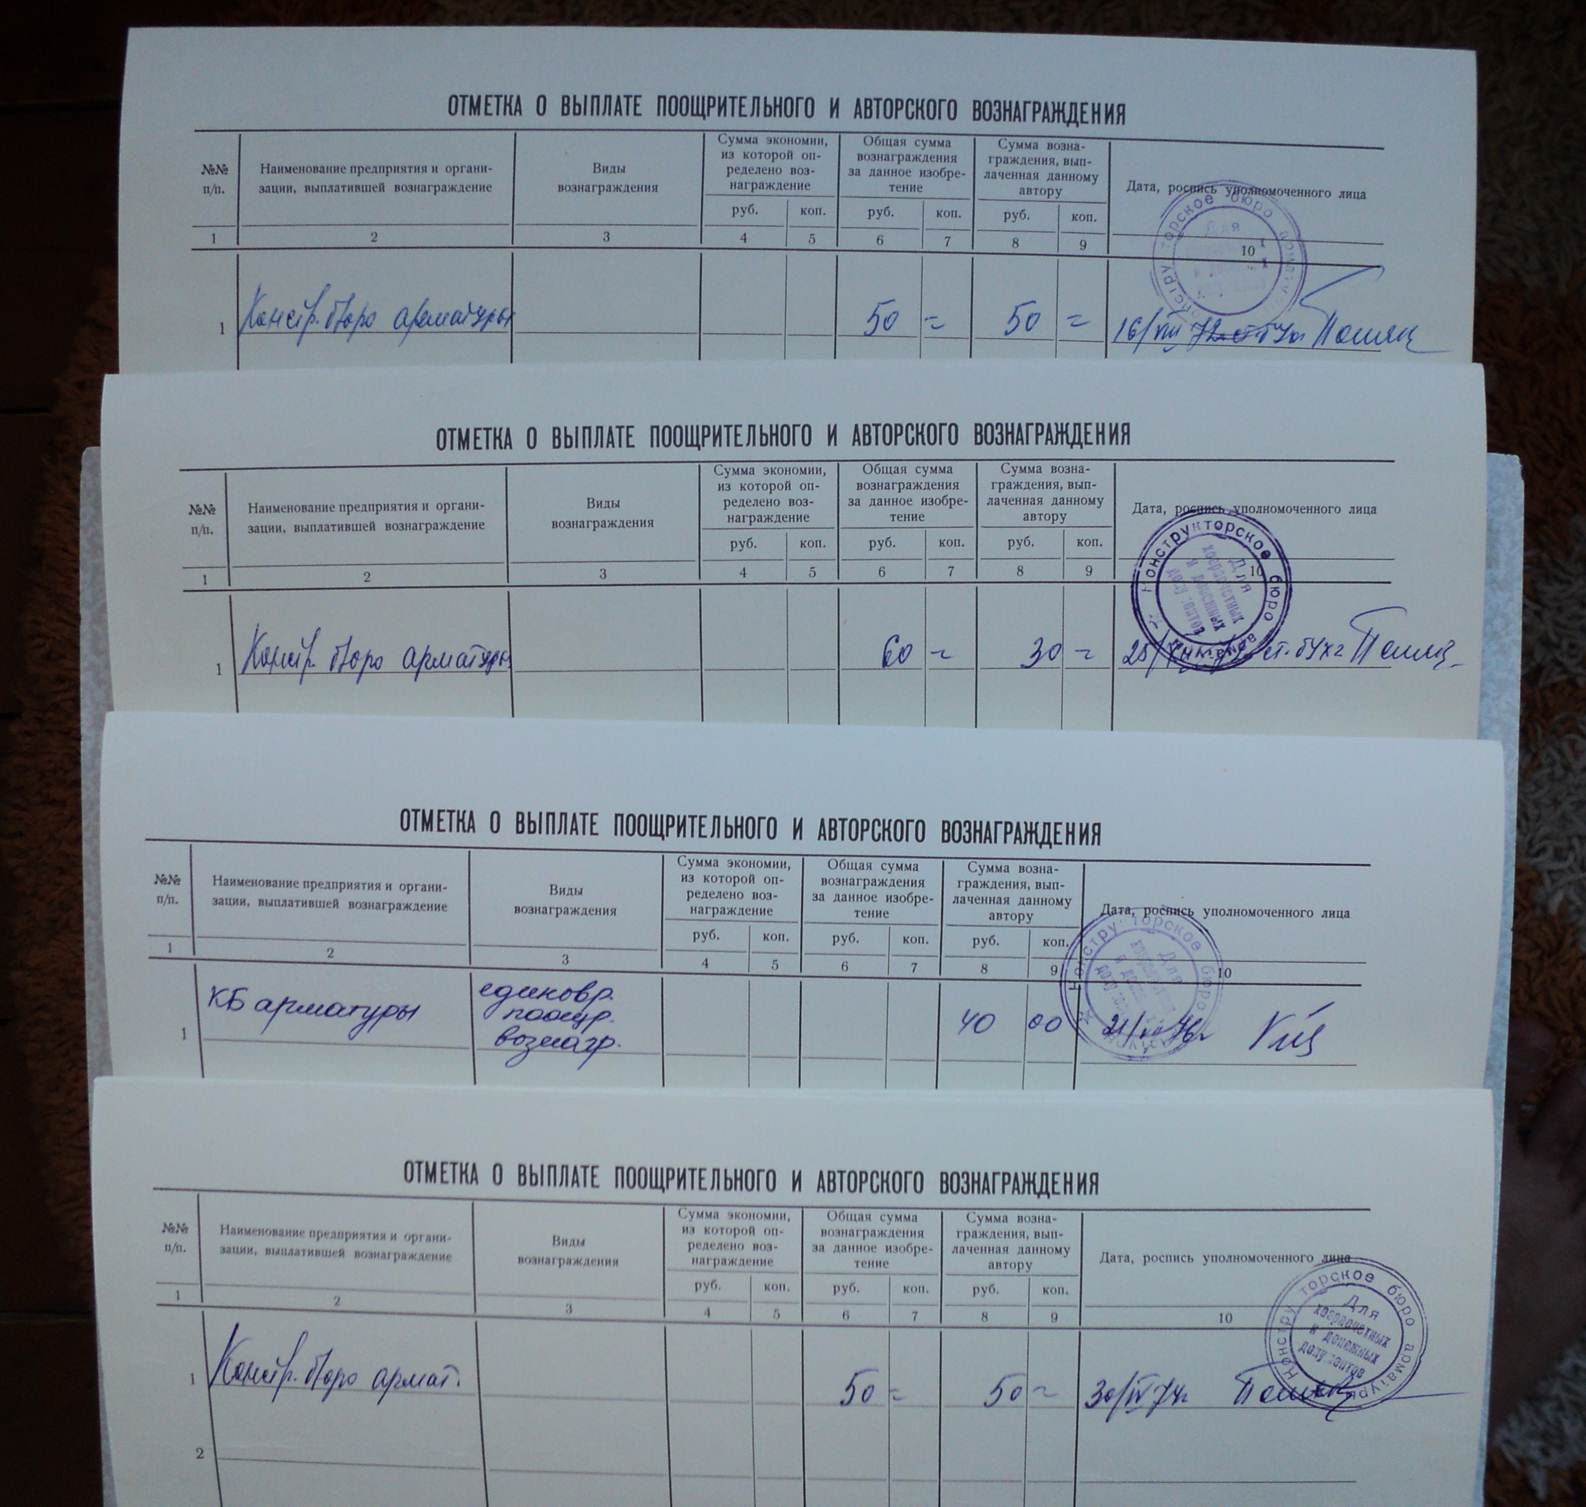 ОТМЕТКА О ВЫПЛАТЕ ПООЩРИТЕЛЬНОГО И АВТОРСКОГО ВОЗНАГРАЖДЕНИЯ
№№ п/п.
Наименование предприятия и органи-
зации, выплатившей вознаграждение
Виды
вознаграждения
Сумма экономии,
из которой оп-
ределено воз-
награждение
Общая сумма
вознаграждения
за данное изобре-
тение
Сумма возна-
граждения, вып-
лаченная данному
автору
Дата, роспись уполномоченного лица
руб. коп. руб. коп. руб. коп.
1 2 3 4 5 6 7 8 9 10
1 Констр. бюро арматуры 50 = 50 = 16/VIII 72 ст бух
ОТМЕТКА О ВЫПЛАТЕ ПООЩРИТЕЛЬНОГО И АВТОРСКОГО ВОЗНАГРАЖДЕНИЯ
№№ п/п.
Наименование предприятия и органи-
зации, выплатившей вознаграждение
Виды
вознаграждения
Сумма экономии,
из которой оп-
ределено воз-
награждение
Общая сумма
вознаграждения
за данное изобре-
тение
Сумма возна-
граждения, вып-
лаченная данному
автору
Дата, роспись уполномоченного лица
руб. коп. руб. коп. руб. коп.
1 2 3 4 5 6 7 8 9 10
Конструкторское бюро арматуры
Для
хозрасчетных
и денежных
1 Констр. бюро арматуры 60 = 30 = ст. бухг
ОТМЕТКА О ВЫПЛАТЕ ПООЩРИТЕЛЬНОГО И АВТОРСКОГО ВОЗНАГРАЖДЕНИЯ
№№ п/п.
Наименование предприятия и органи-
зации, выплатившей вознаграждение
Виды
вознаграждения
Сумма экономии,
из которой оп-
ределено воз-
награждение
Общая сумма
вознаграждения
за данное изобре-
тение
Сумма возна-
граждения, вып-
лаченная данному
автору
Дата, роспись уполномоченного лица
руб. коп. руб. коп. руб. коп.
1 2 3 4 5 6 7 8 9 10
1 КБ арматуры
единовр.
поощр.
вознагр.
40 00
ОТМЕТКА О ВЫПЛАТЕ ПООЩРИТЕЛЬНОГО И АВТОРСКОГО ВОЗНАГРАЖДЕНИЯ
№№ п/п.
Наименование предприятия и органи-
зации, выплатившей вознаграждение
Виды
вознаграждения
Сумма экономии,
из которой оп-
ределено воз-
награждение
Общая сумма
вознаграждения
за данное изобре-
тение
Сумма возна-
граждения, вып-
лаченная данному
автору
Дата, роспись уполномоченного лица
руб. коп. руб. коп. руб. коп.
1 2 3 4 5 6 7 8 9 10
Конструкторское бюро арматуры
Для
хозрасчетных
и денежных
документов
1 Констр. бюро армат. 50 = 50 = 30/IV 74г
2